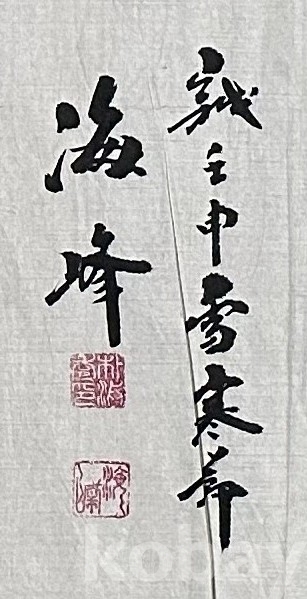 歲壬申雪寒節
海峰
kobay